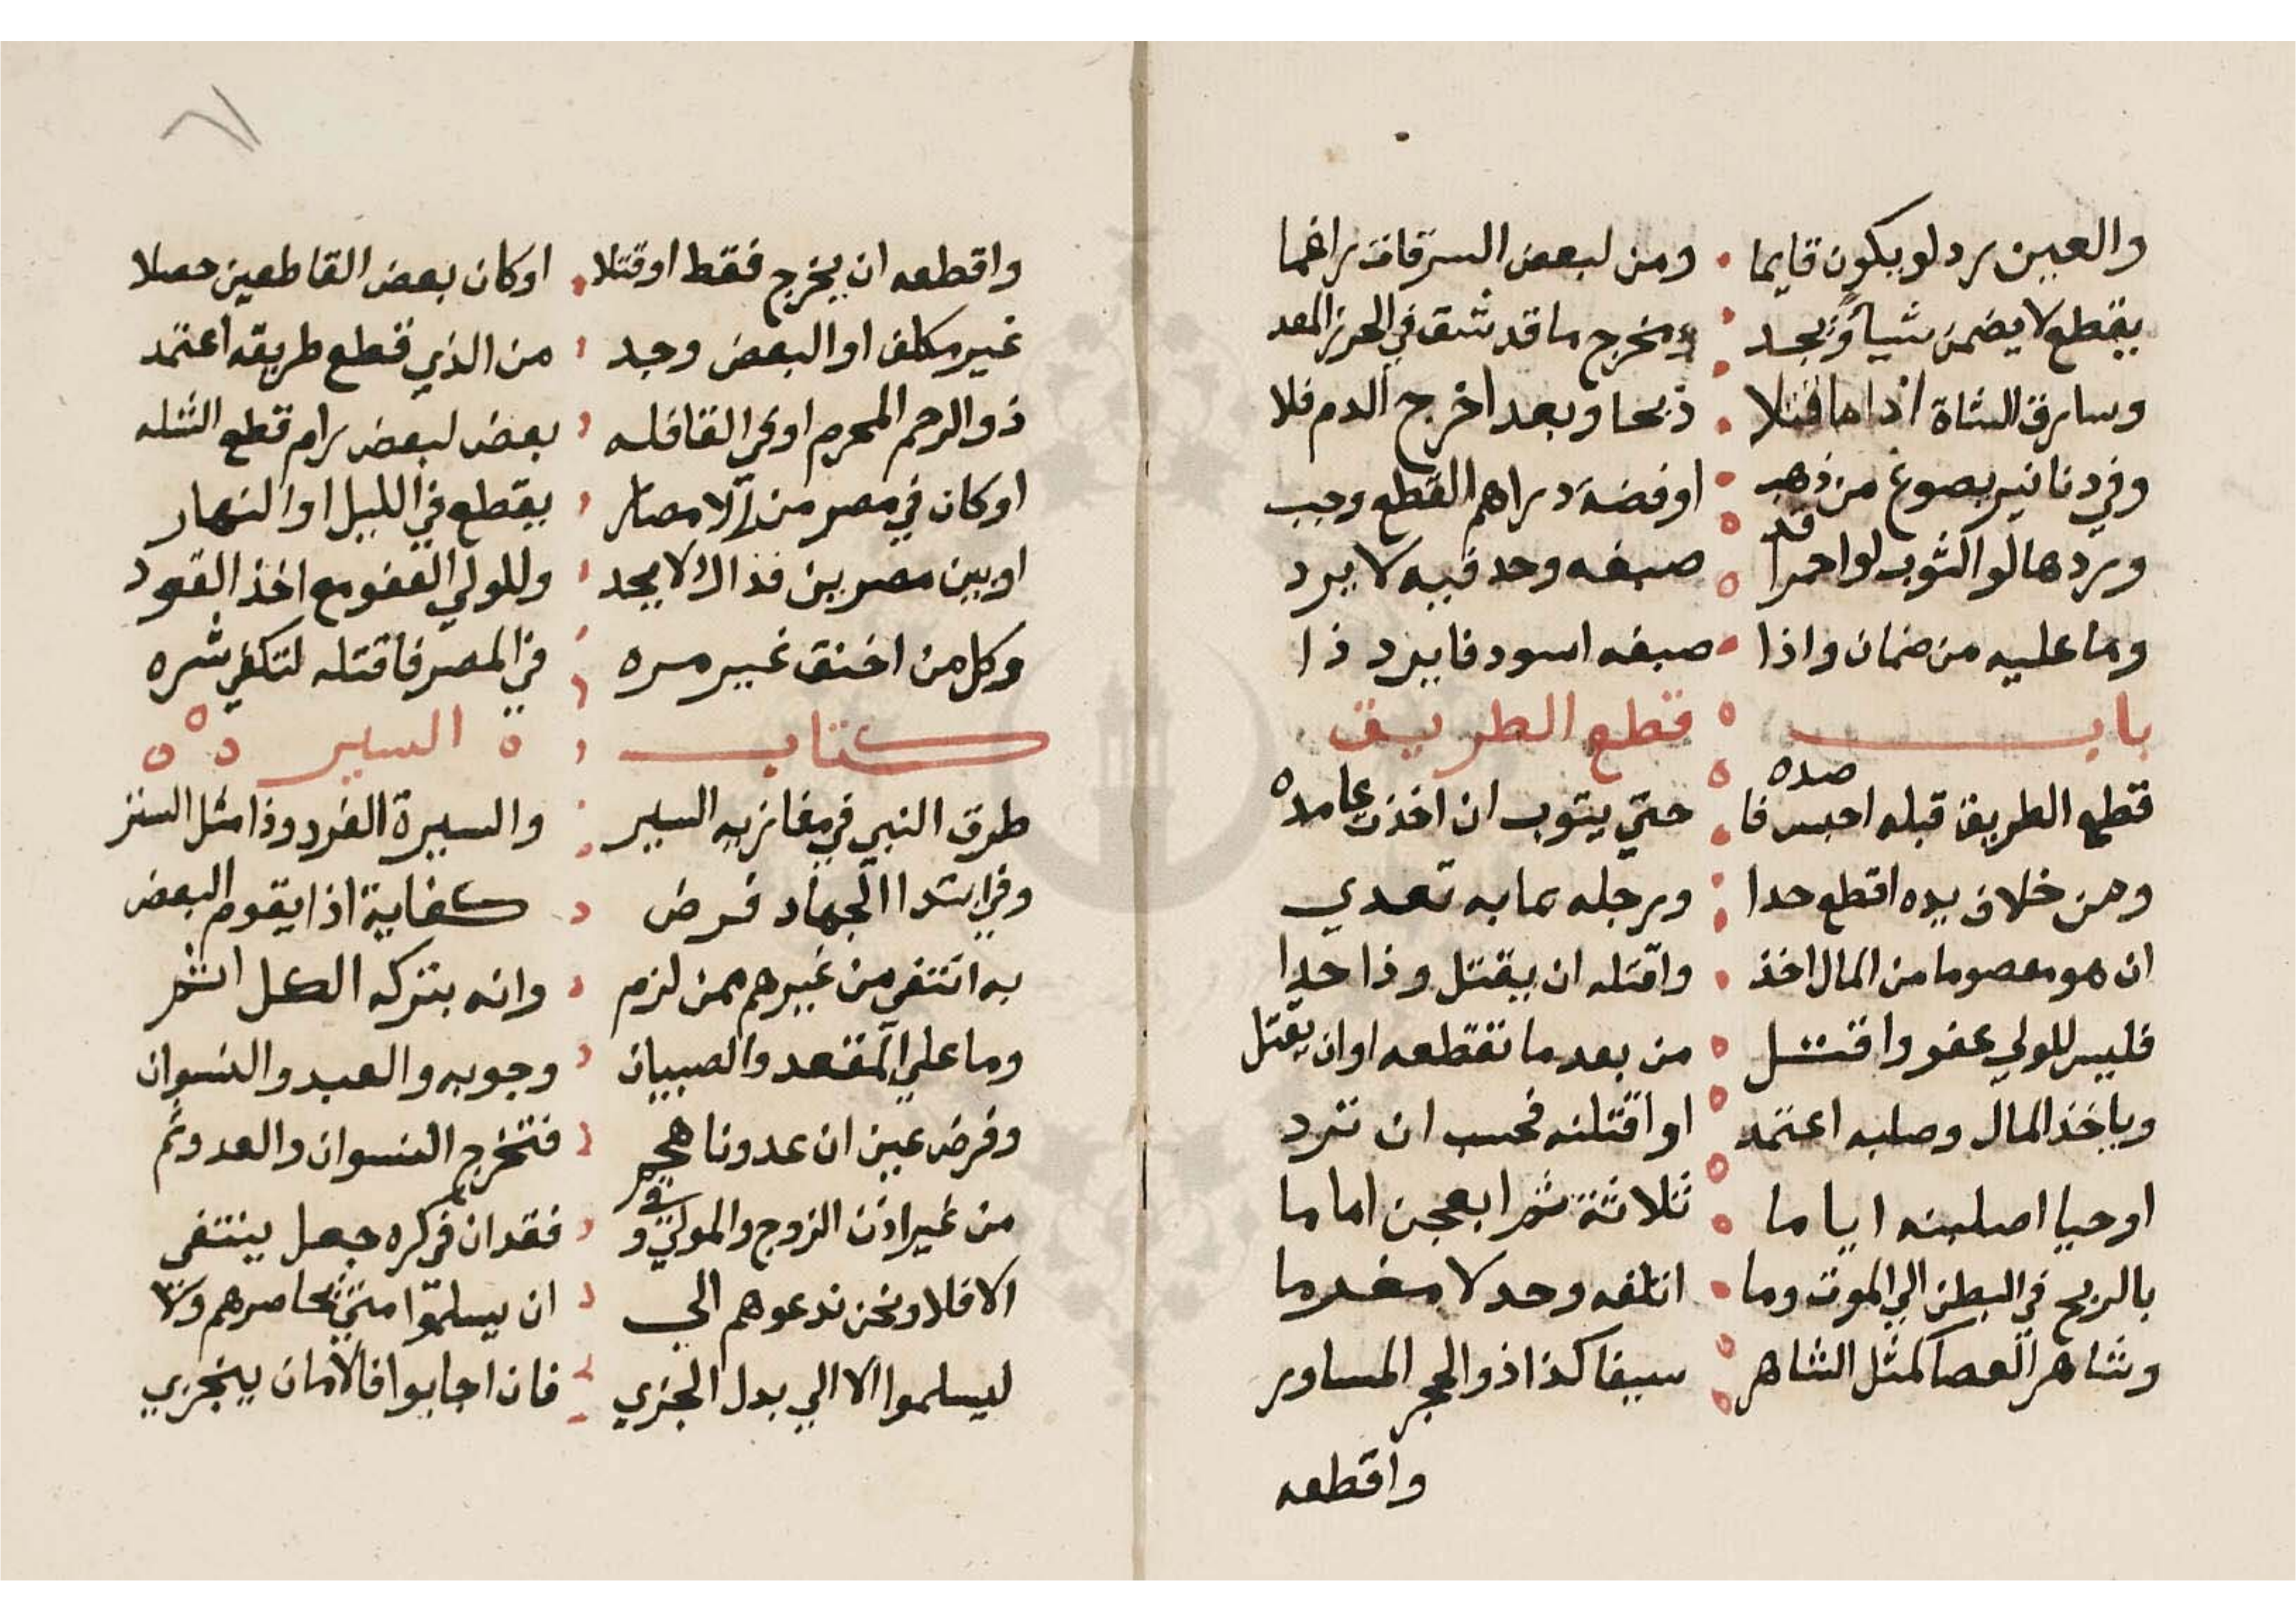 والعين يرد لو يكون قايما ومن لبعض السرقات راغما
يقطع لا يضمن شيأ ويجد ومخرج ما قد شق في الحرز المعد
وسارق الشاة اذا ما قتلا ذبحا وبعد اخرج الدم فلا
وفي دنانير بصوغ من ذهب او فضة دراهم القطع وجب
وردها لو الثوب لو احمرا قد صبغه وحد فيه لا يرد
وما عليه من ضمان واذا صبغه اسود فايرد ذا
باب قطع الطريق
قطع الطريق قبله احبس فا صده حتي يتوب ان اخذت عامده
ومن خلاف يده اقطع حدا ورجله بما به تعدي
ان هو معصوما من المال اخذ واقتله ان يقتل وذا حدا
فليس للولي عفو واقتل من بعد ما تقطعه او ان يقتل
وياخذ المال وصلبه اعتمد او اقتلنه فحسب ان ترد
او حيا اصلبنه اياما ثلاثة ثم ابعجن اماما
بالريح في البطن الي الموت وما اتلفه وحد لا مغرما
وشاهر العصا كمثل الشاهر سيفا كذا ذو الحجر المساور
واقطعه
واقطعه ان يخرج فقط او قتلا او كان بعض القاطعين حصلا
غير مكلف او البعض وجد من الذي قطع طريقه اعتمد
ذو الرحم المحرم او في القافله بعض لبعض رام قطع الثله
او كان في مصر من الامصار يقطع في الليل او النهار
او بين مصرين فذاك لا يحد وللولي العفو مع اخذ القود
وكل من اخنق غير مره في المصر فاقتله لتكفي شره
كتاب السير
طرق النبي في مغازيه السير والسيرة الفرد وذا مثل السنر
وفي ابتدا الجهاد فرض كفاية اذا يقوم البعض
به انتفي من غيرهم ممن لزم وانه بتركه الكل اثم
وما علي المقعد والصبيان وجوبه والعبد والنسوان
وفرض عين ان عدونا هجم فتخرج النسوان والعدو ثم
من غير اذن الزوج والمولي وفي فقدان في كره جعل ينتفي
الا فلا ونحن ندعوهم الي ان يسلموا متي نحاصرهم ولا
ليسلموا الا الي بدل الجزي فان اجابوا فالامان ينجزي